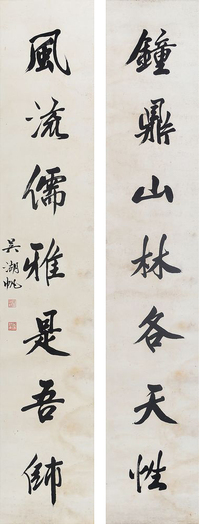 鐘鼎山林各天性
風流儒雅是吾師
吳湖帆